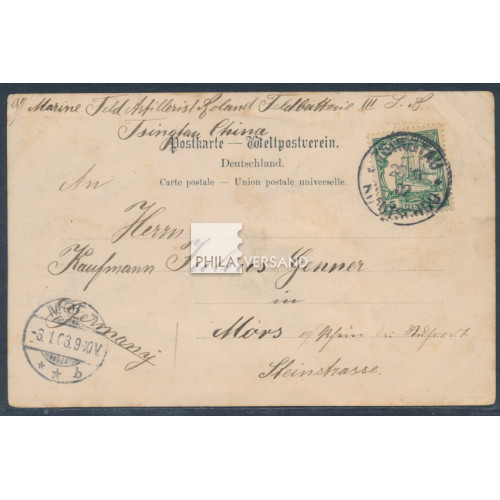 Marine Feld Artillerist Roland Feldbatterie III S. B.
Tsingtau China
Postkarte — Weltpostverein.
Deutschland.
Carte postale — Union postale universelle.
An
Herrn
Kaufmann Genner
in
Mörs a/Rhein bei Ruhrort
Steinstrasse.
Germany
PHILA VERSAND
-3.1.03.9-10V.
* * b